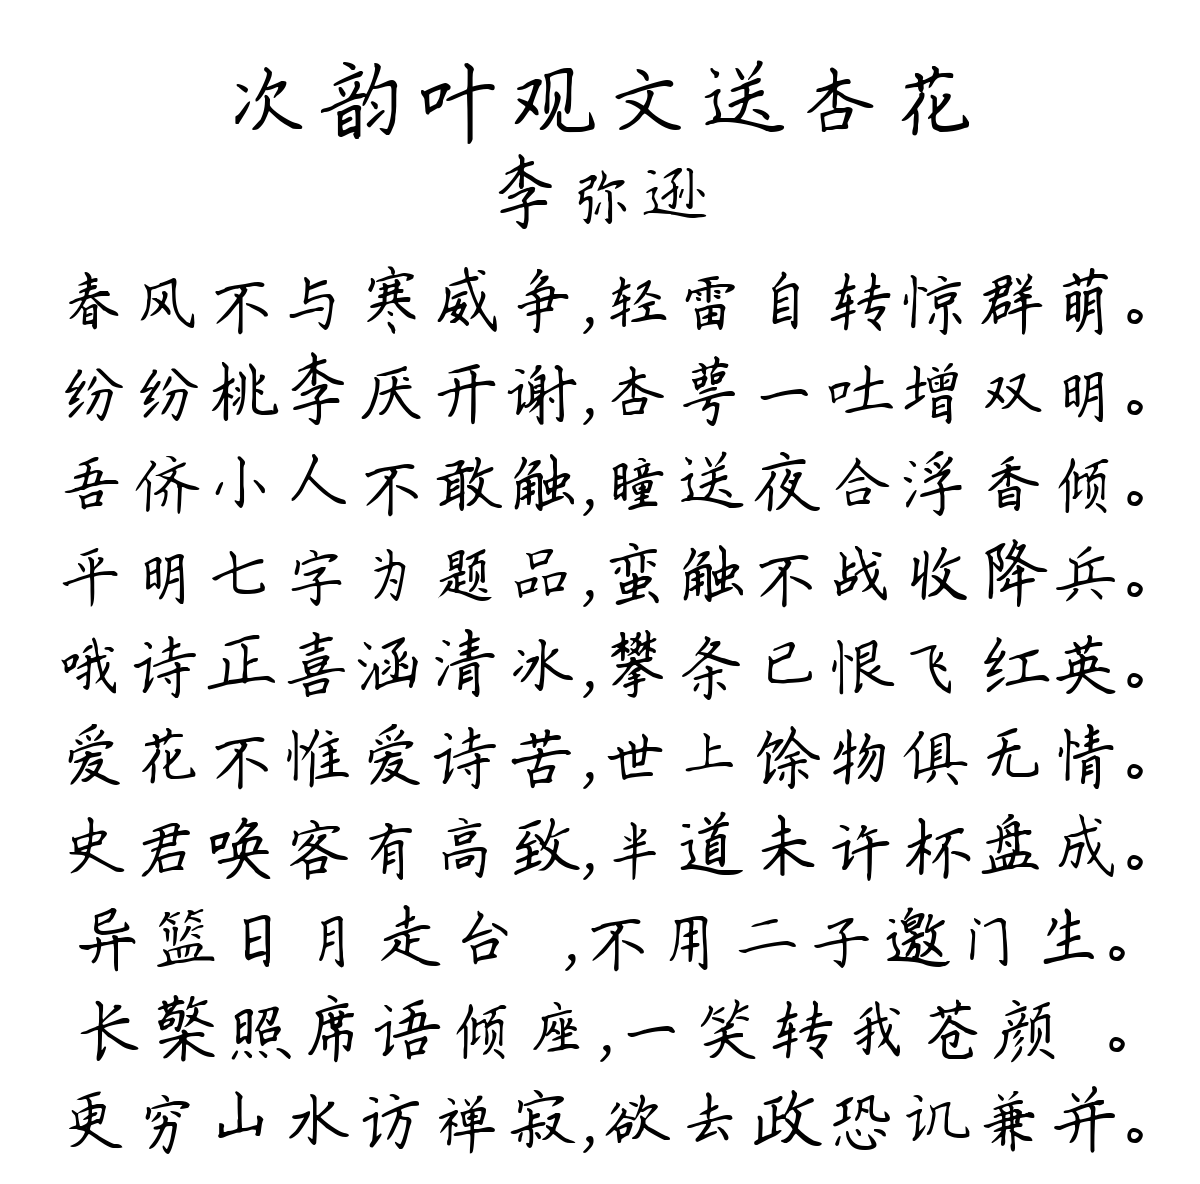 次韵叶观文送杏花
李弥逊
春风不与寒威争,轻雷自转惊群萌。
纷纷桃李厌开谢,杏萼一吐增双明。
吾侪小人不敢触,瞳送夜合浮香倾。
平明七字为题品,蛮触不战收降兵。
哦诗正喜涵清冰,攀条已恨飞红英。
爱花不惟爱诗苦,世上馀物俱无情。
史君唤客有高致,半道未许杯盘成。
异篮日月走台 ,不用二子邀门生。
长檠照席语倾座,一笑转我苍颜 。
更穷山水访禅寂,欲去政恐讥兼并。